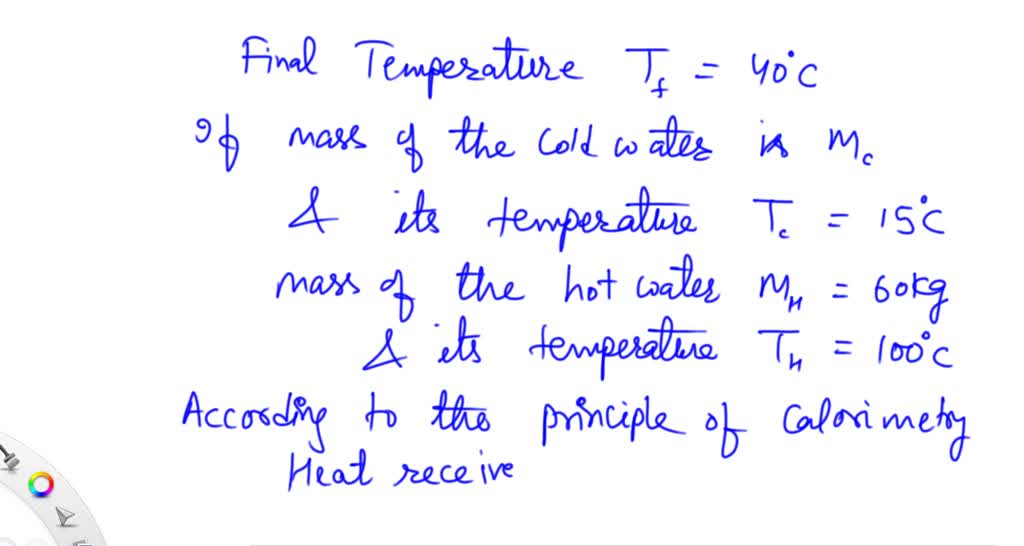 Final Temperature T_f = 40°C
If mass of the cold water is M_c
& its temperature T_c = 15°C
mass of the hot water M_H = 60kg
& its temperature T_H = 100°C
According to the principle of Calorimetry
Heat receive